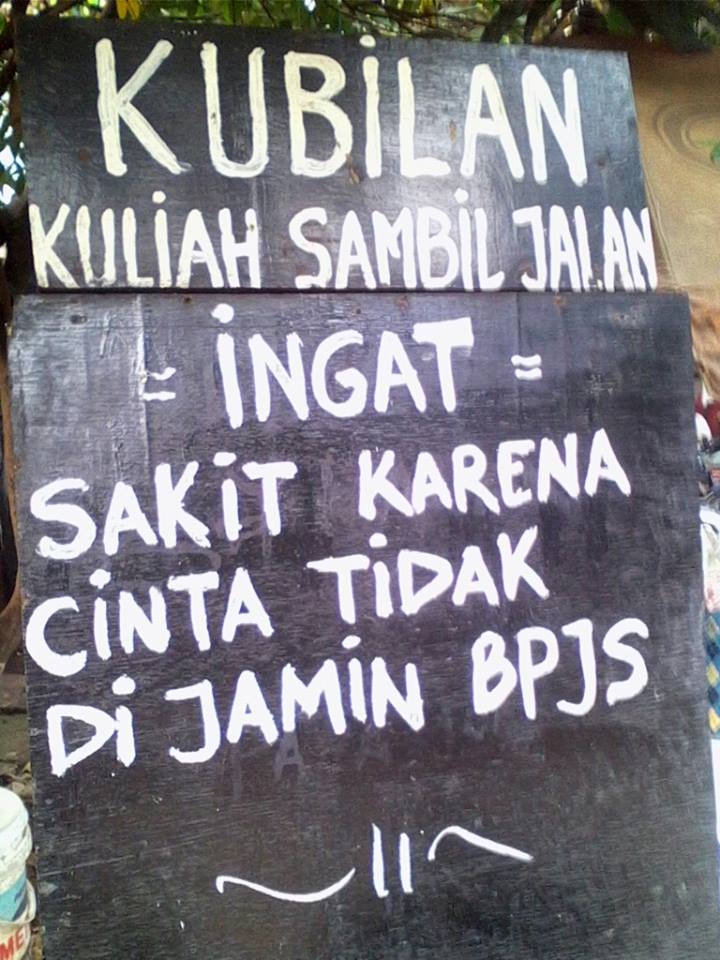 KUBiLAN
KULiAH SAMBiL JALAN
= iNGAT =
SAKiT KARENA
CiNTA TiDAK
Di JAMiN BPJS